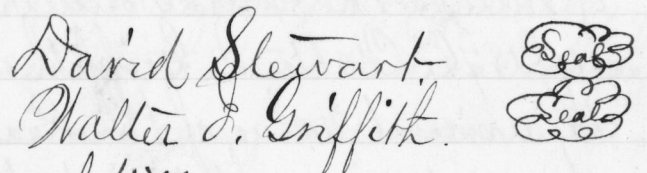 David Stewart. Seal
Walter S. Griffith. Seal